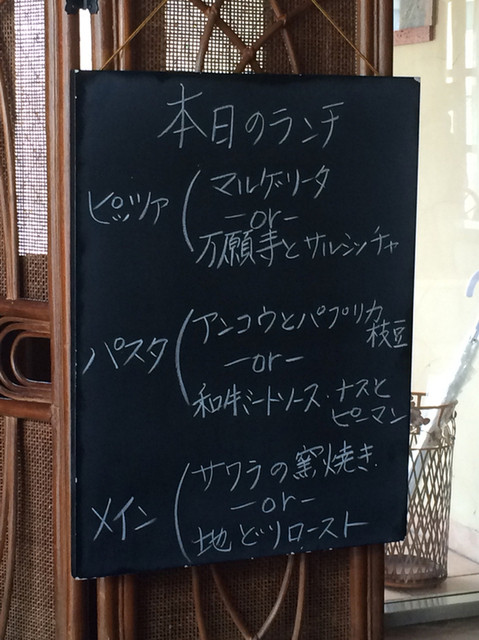 本日のランチ
ピッツァ
マルゲリータ
-or-
万願寺とサルシッチャ
パスタ
アンコウとパプリカ
枝豆
-or-
和牛ミートソース・ナスと
ピーマン
メイン
サワラの窯焼き
-or-
地どりロースト